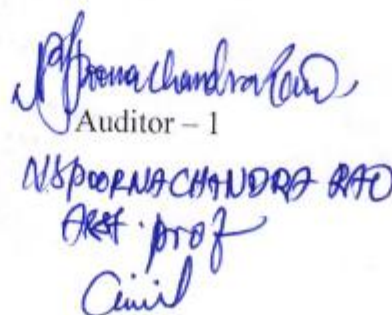 NSPoornachandraRao
Auditor – 1
NSPOORNACHANDRA RAO
Asst. prof
Civil